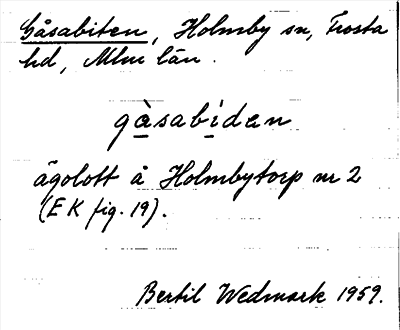 Gåsabiten, Holmby sn, Frosta
hd, Mlm län.
gàsabíden
ägolott å Holmbytorp nr 2
(EK fig. 19).
Bertil Wedmark 1959.